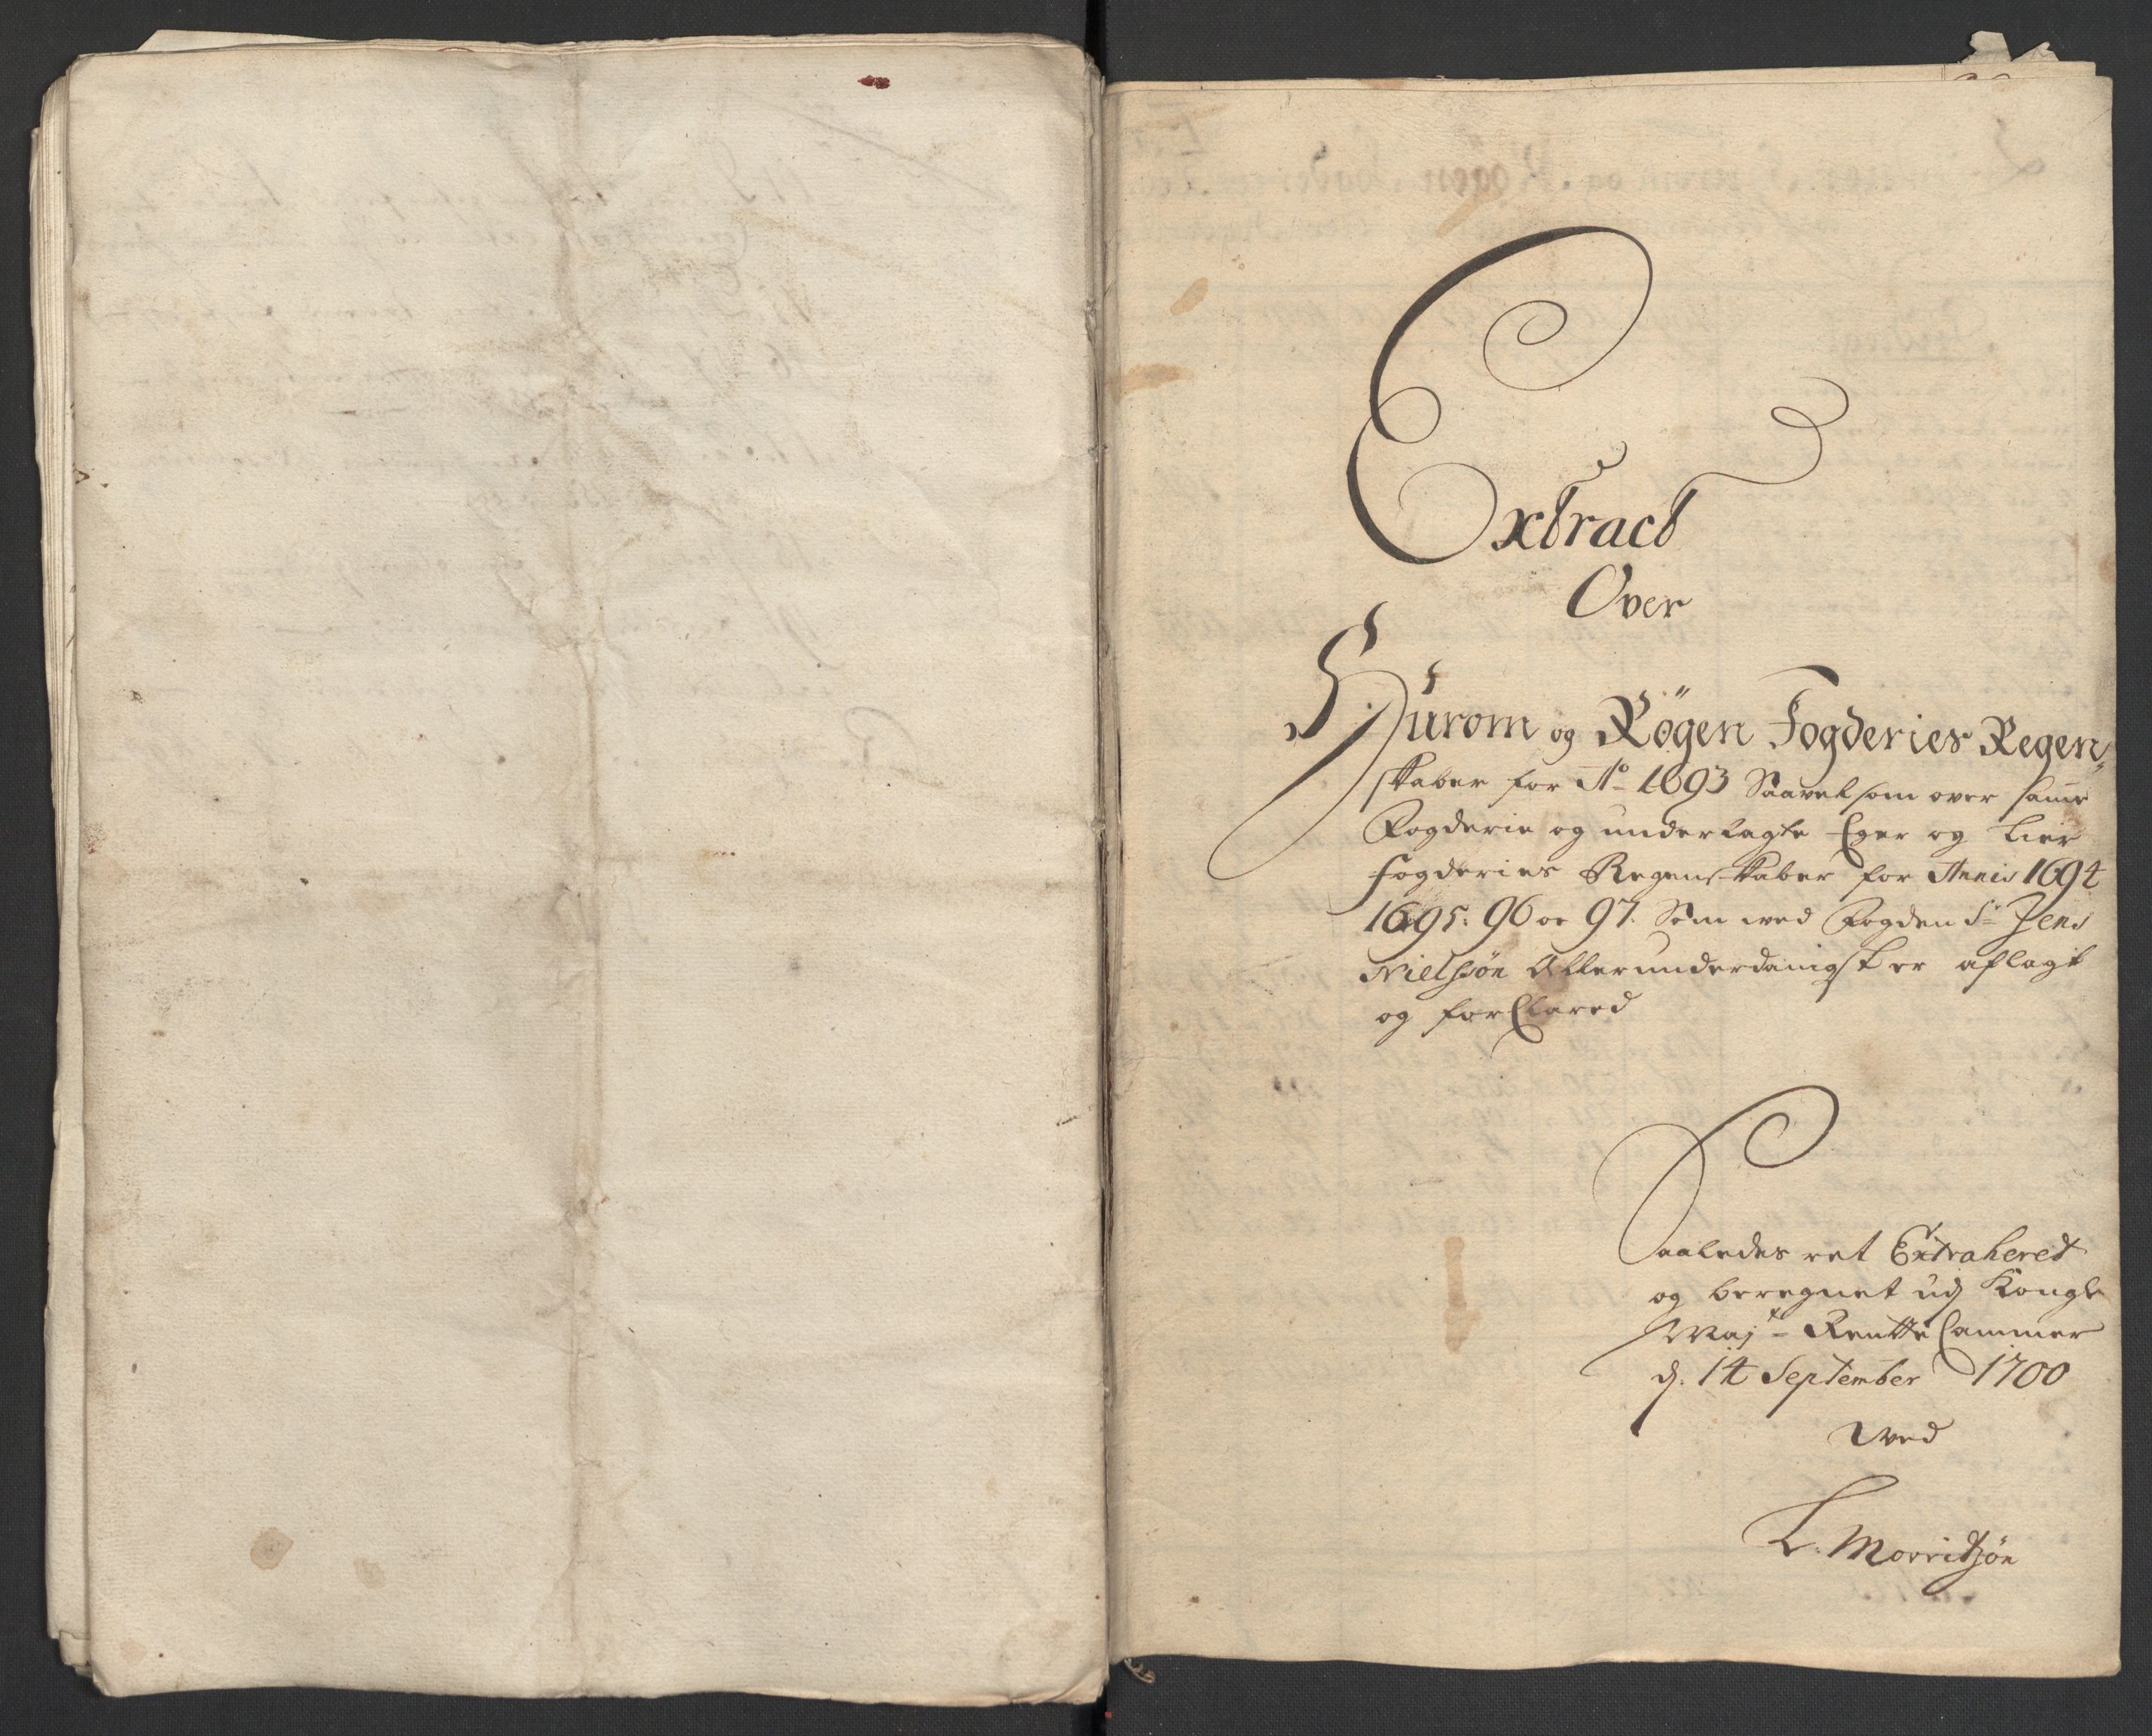 Extract
Over
Hurom og Røgen Fogderies Regen
skaber for Ao 1693 Saavelsom over samme
Fogderie og underlagte Eger og Lier
fogderies Regenskaber for Annis 1694
1695: 96 oc 97. Som ved Fogden Sr Jens
Nielssøn Allerunderdanigst er aflagt
og forClared
Saaledes ret Extraheret
og beregnet udj Kongl
Mayts RentteCammer
dj. 14 September 1700
Wed
L. Morritzøn